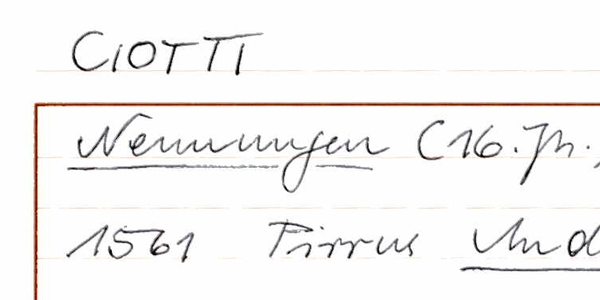 CIOTTI
Nennungen (16. Jh.,
1561 Pirrus